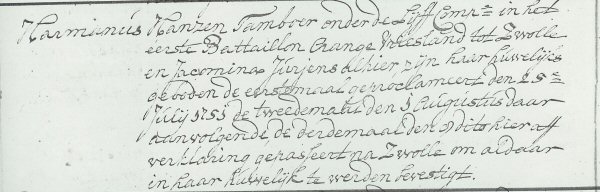 Harmanus Hanzen Tamboer onder de Lijff Comp:e in het
eerste Battaillon Orange Vriesland tot Zwolle
en Jacomina Jurjens alhier zijn haar huwelijks
geboden de eerstemaal geproclameert den 25:e
Julij 1751 de tweedemaal den 1 Augustus daar
aanvolgende de derdemaal den dito hier aff
verklaring gepasseert na Zwolle om aldaar
in haar huwelijk te werden bevestigt.